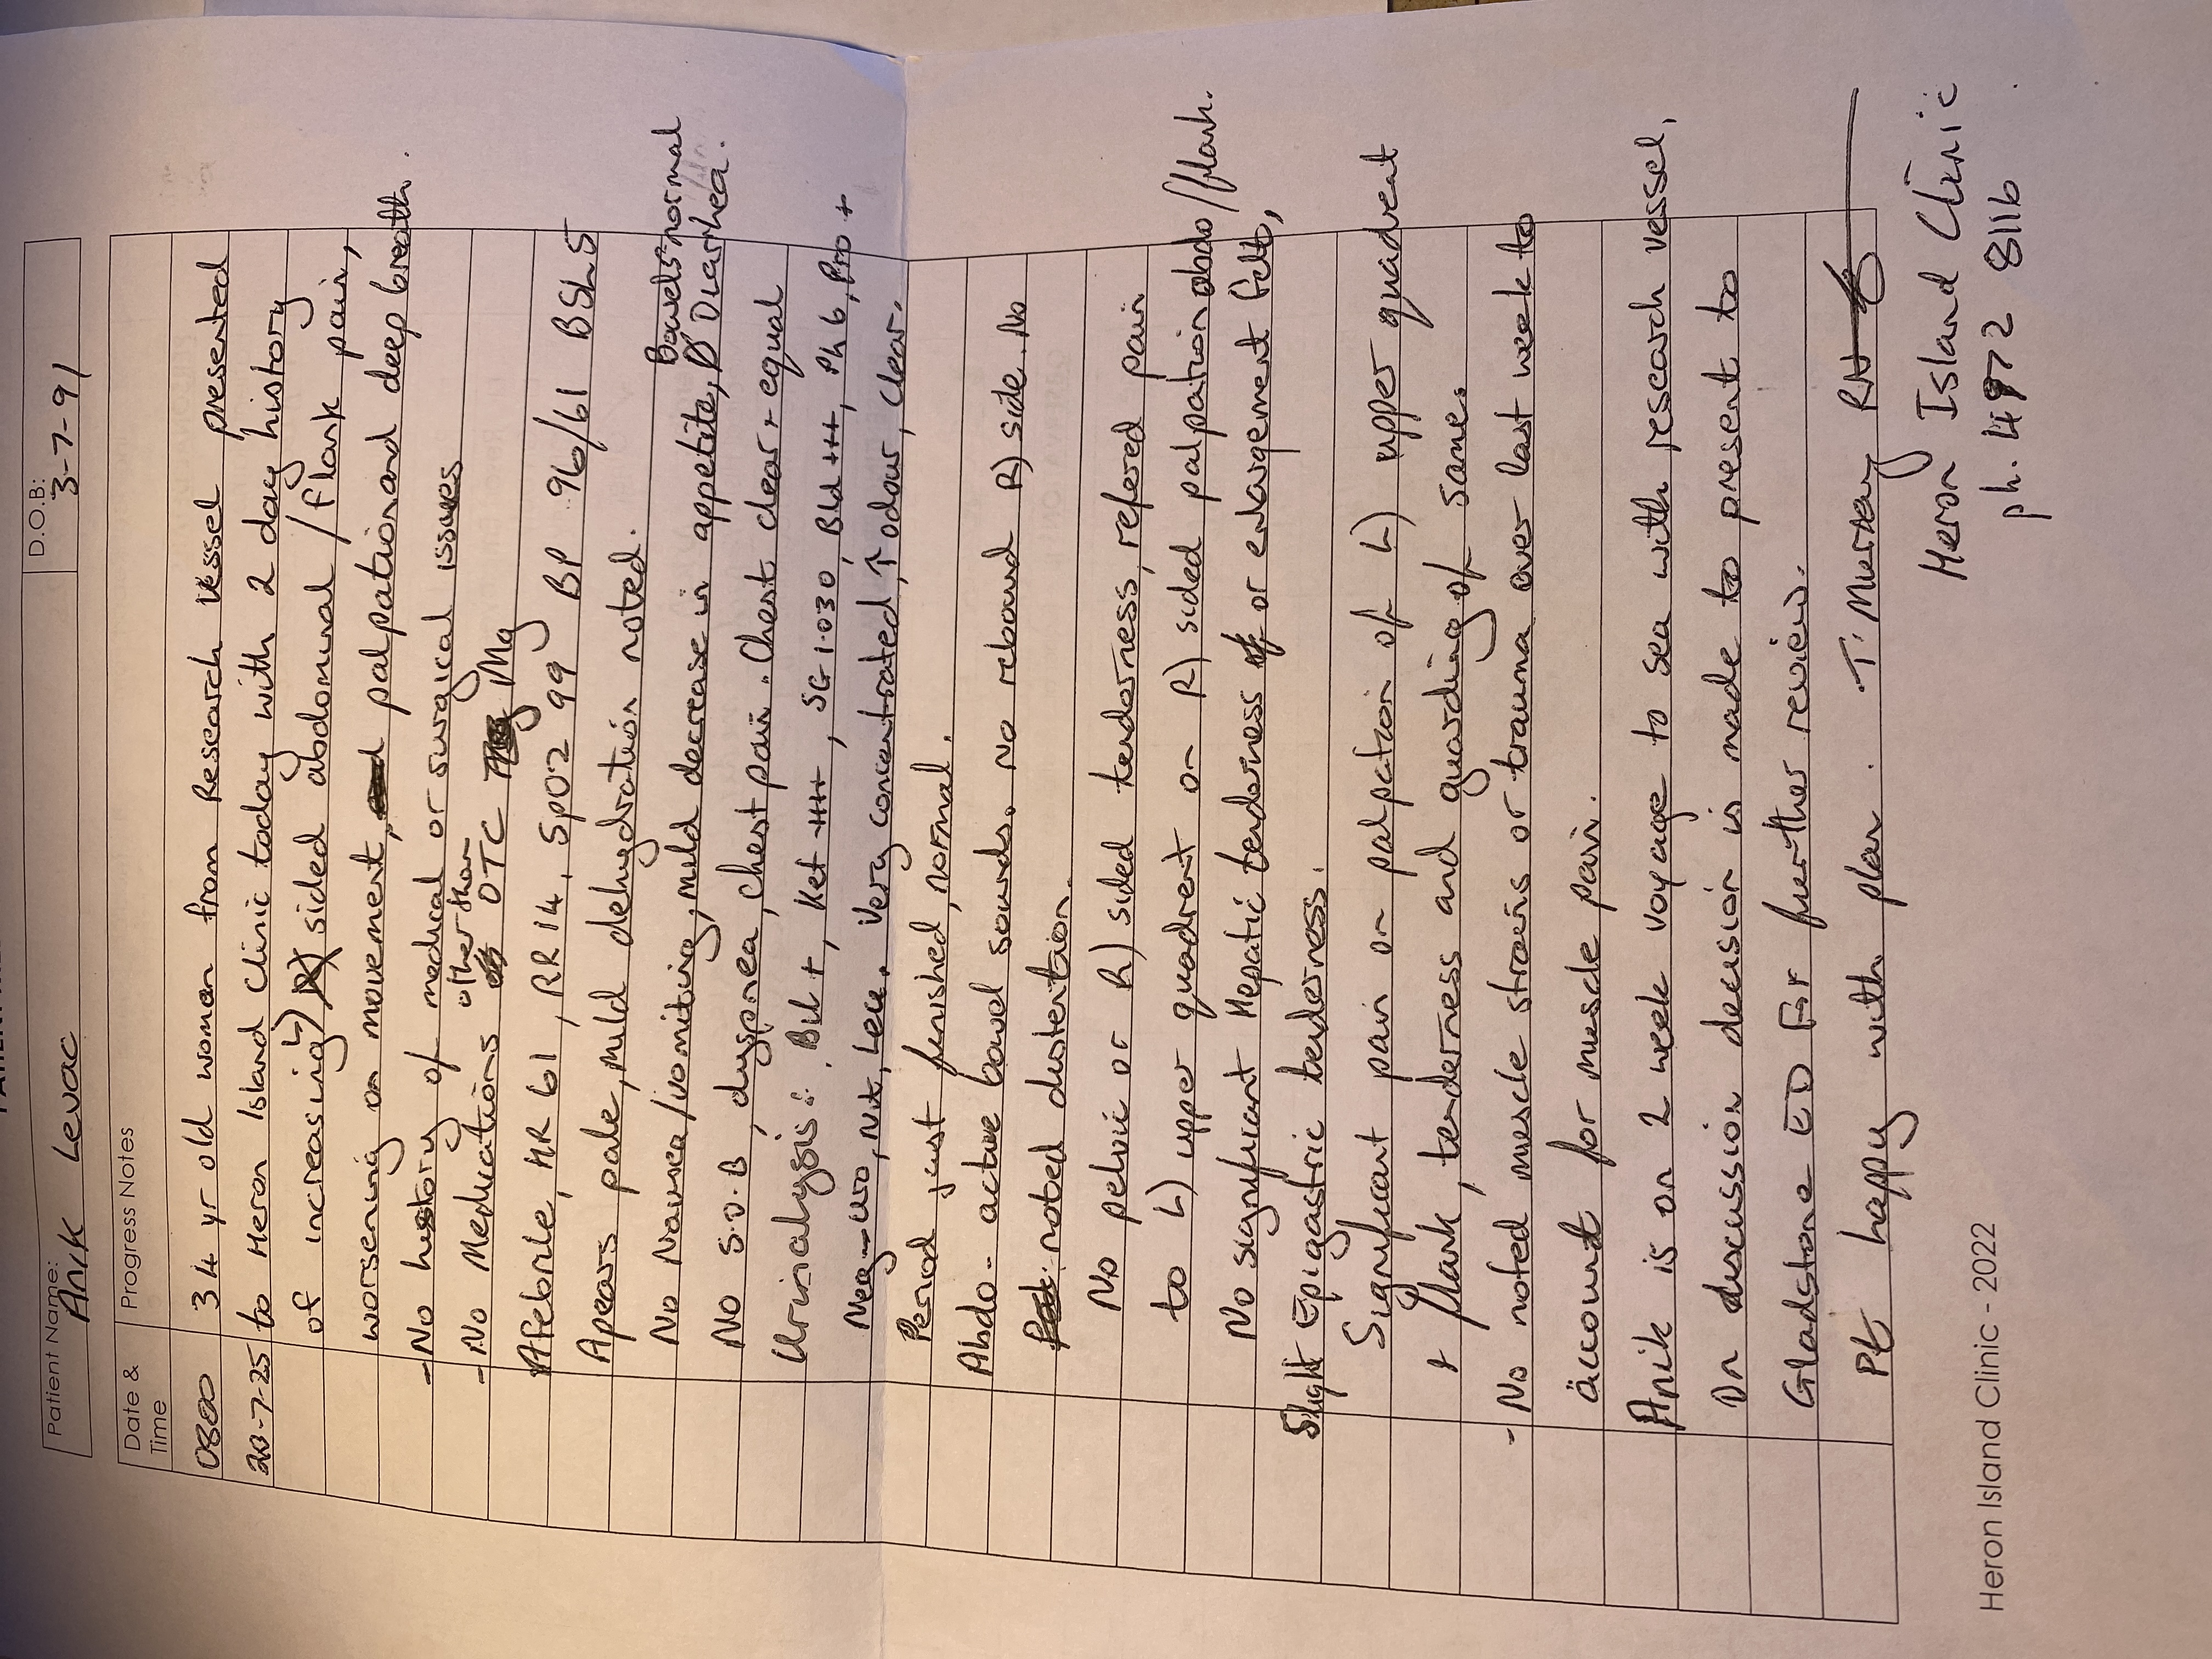 Patient Name: Anik Levac
D.O.B: 3-7-91
Date & Time
Progress Notes
0800 34 yr old woman from Research vessel presented
20-7-25 to Heron Island Clinic today with 2 day history
of increasing L) sided abdominal / flank pain,
worsening on movement, palpation and deep breath.
- No history of medical or surgical issues
- No Medications other than OTC Mg
Afebrile, HR 61, RR 14, SpO2 99 BP 96/61 BSL 5
Apears pale, mild dehydration noted.
No Nausea/vomiting, mild decrease in appetite, Ø Diarrhea. Bowels normal
No S.O.B, dyspnea, chest pain. Chest clear + equal
Urinalysis: Bil +, Ket +++, SG 1.030, Bld +++, Ph 6, Pro +
Neg - uro, Nit, Leu. Very concentrated, ↑ odour, clear.
Period just finished, normal.
Abdo - active bowel sounds. No rebound R) side. No
noted distention.
No pelvic or R) sided tenderness, refered pain
to L) upper quadrent on R) sided palpation abdo/flank.
No significant Hepatic tenderness or enlargement felt,
Slight Epigastric tenderness.
Significant pain on palpation of L) upper quadrent
+ flank, tenderness and guarding of same.
- No noted muscle strains or trauma over last week to
account for muscle pain.
Anik is on 2 week voyage to sea with research vessel,
On discussion decision is made to present to
Gladstone ED for further review.
Pt happy with plan. T. Murray RN
Heron Island Clinic
ph. 4972 8116
Heron Island Clinic - 2022